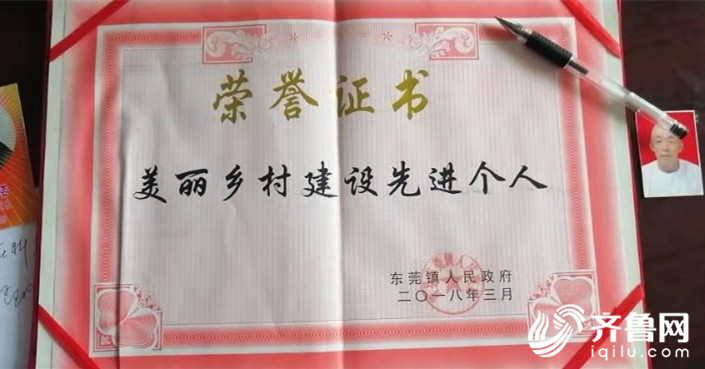 荣誉证书
美丽乡村建设先进个人
东莞镇人民政府
二〇一八年三月
齐鲁网
iqilu.com